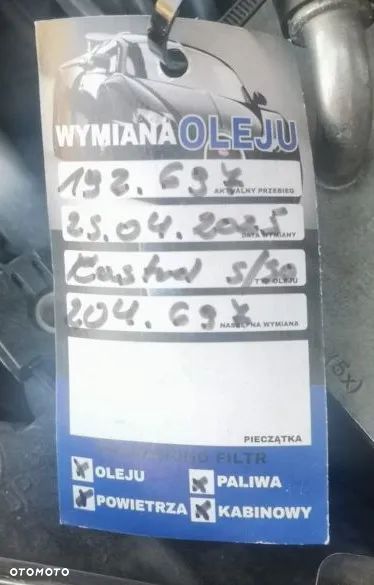 WYMIANA OLEJU
192.697
AKTUALNY PRZEBIEG
25.04.2025
DATA WYMIANY
Castrol 5/30
TYP OLEJU
204.697
NASTĘPNA WYMIANA
PIECZĄTKA
FILTR
OLEJU PALIWA
POWIETRZA KABINOWY
(5x)
OTOMOTO